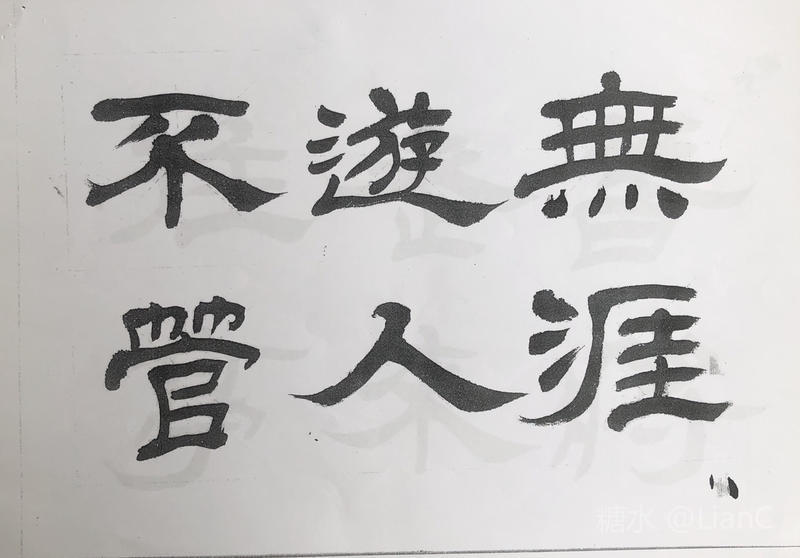 無涯
遊人
不管
糖水 @LianC